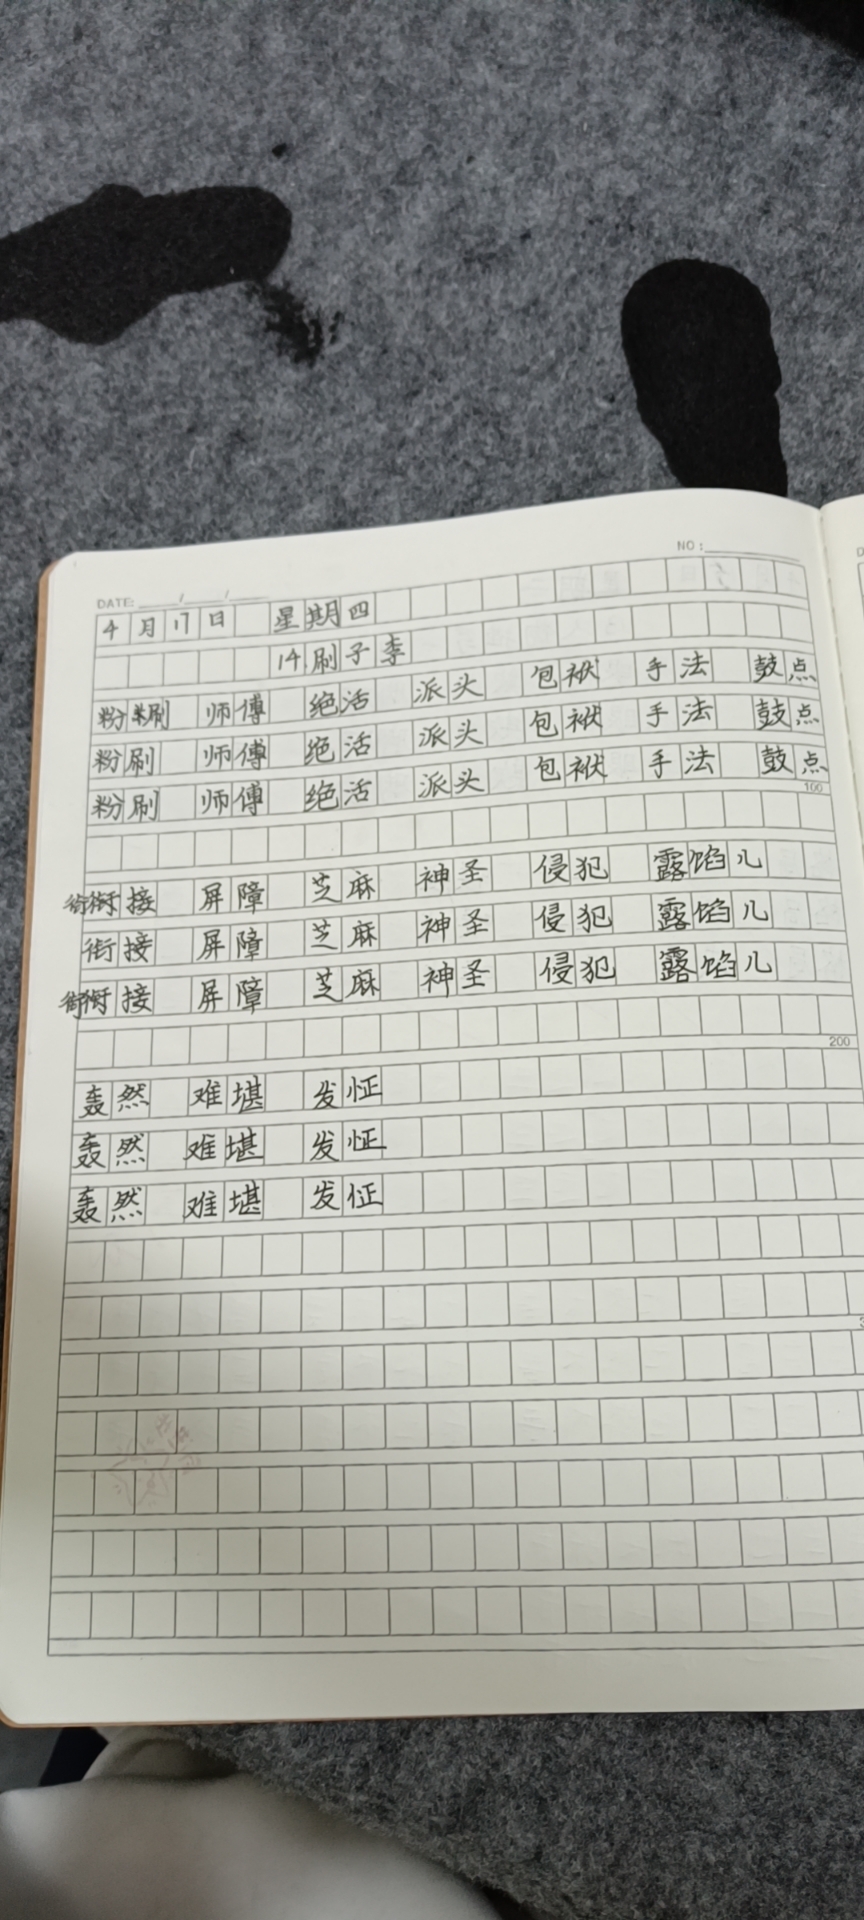 NO:
DATE: / /
4月17日 星期四
14.刷子李
粉刷 师傅 绝活 派头 包袱 手法 鼓点
粉刷 师傅 绝活 派头 包袱 手法 鼓点
粉刷 师傅 绝活 派头 包袱 手法 鼓点
100
衔接 屏障 芝麻 神圣 侵犯 露馅儿
衔接 屏障 芝麻 神圣 侵犯 露馅儿
衔接 屏障 芝麻 神圣 侵犯 露馅儿
200
轰然 难堪 发怔
轰然 难堪 发怔
轰然 难堪 发怔